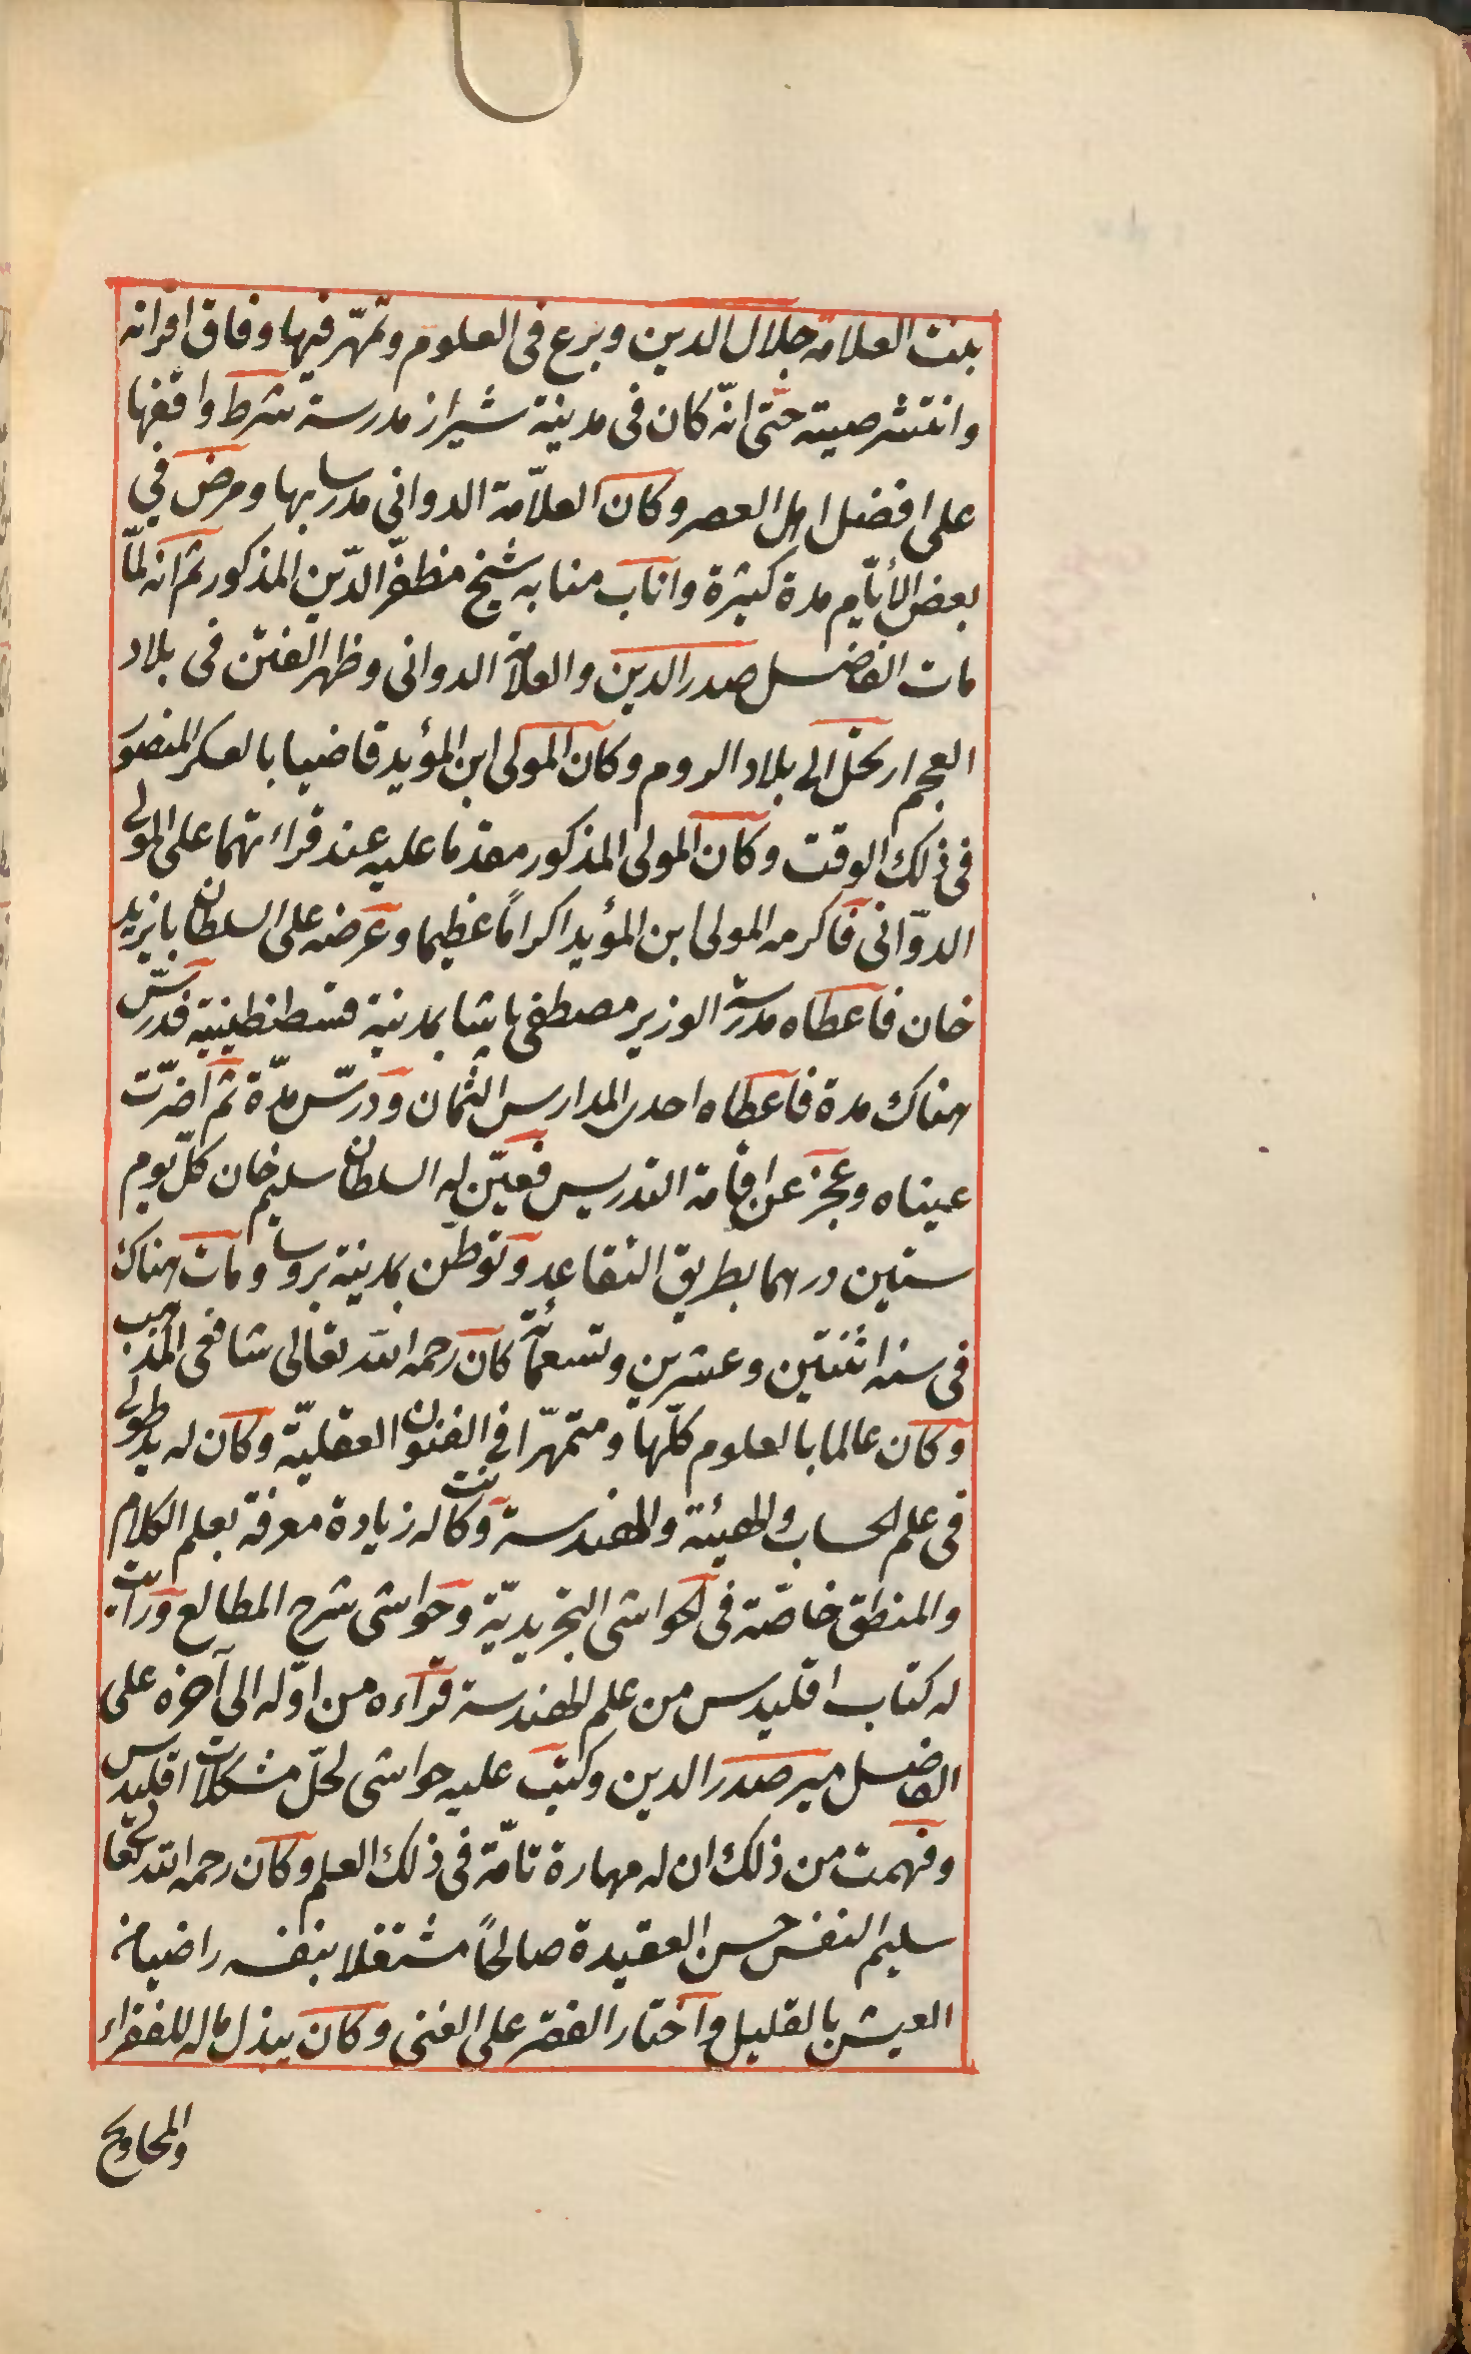 بنت العلامة جلال الدين وبرع فى العلوم وتمهّر فيها وفاق اقرانه
وانتشر صيته حتى انّه كان فى مدينة شيراز مدرسة شرط واقفها
على افضل اهل العصر وكان العلاّمة الدوانى مدرسا بها ومرض فى
بعض الأيّام مدة كثيرة واناب منابه شيخ مظفّر الدّين المذكور ثم انه لمّا
مات الفاضل صدر الدين والعلامة الدوانى وظهر الفتن فى بلاد
العجم ارتحل الى بلاد الروم وكان المولى ابن المؤيد قاضيا بالعسكر المنصور
فى ذلك الوقت وكان المولى المذكور مقدما عليه عند قرائتهما على المولى
الدوّانى فاكرمه المولى ابن المؤيد اكراماً عظيما وعرضه على السلطان بايزيد
خان فاعطاه مدرسة الوزير مصطفى پاشا بمدينة قسطنطينية فدرّس
هناك مدة فاعطاه احدى المدارس الثمان ودرّس مدّة ثم اضرّت
عيناه وعجز عن اقامة التدريس فعيّن له السلطان سليم خان كلّ يوم
ستين درهما بطريق التقاعد وتوطّن بمدينة بروسا ومات هناك
فى سنه اثنتين وعشرين وتسعمائة كان رحمه الله تعالى شافعى المذهب
وكان عالما بالعلوم كلّها ومتمهّرا فى الفنون العقليّة وكان له يد طولى
فى علم الحساب والهيئة والهندسة وكانت له زيادة معرفة بعلم الكلام
والمنطق خاصّة فى الحواشى التجريديّة وحواشى شرح المطالع ورايت
له كتاب اقليدس من علم الهندسة قرآءه من اوّله الى آخره على
الفاضل مير صدر الدين وكتب عليه حواشى لحلّ مشكلات اقليدس
وفهمت من ذلك ان له مهارة تامّة فى ذلك العلم وكان رحمه الله تعالى
سليم النفس حسن العقيدة صالحاً مشتغلا بنفسه راضيا من
العيش بالقليل واختار الفقر على الغنى وكان يبذل ماله للفقراء
والمحاويج